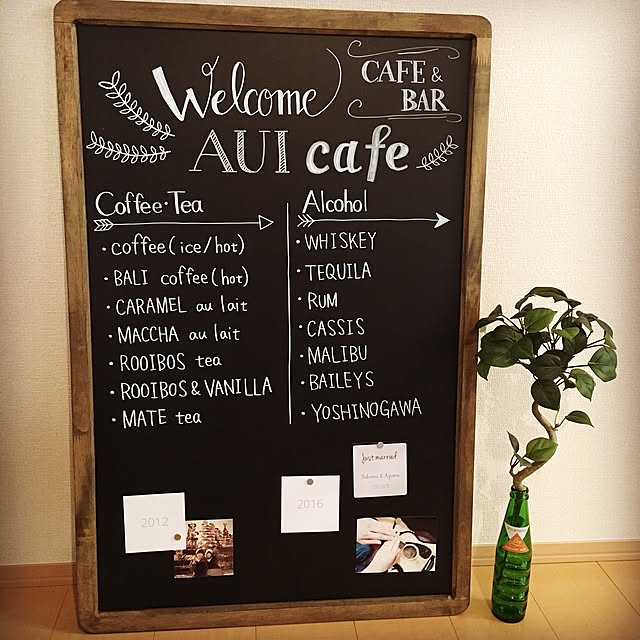 Welcome
CAFE &
BAR
AUI cafe
Coffee・Tea
・coffee(ice/hot)
・BALI coffee(hot)
・CARAMEL au lait
・MACCHA au lait
・ROOIBOS tea
・ROOIBOS & VANILLA
・MATE tea
Alcohol
・WHISKEY
・TEQUILA
・RUM
・CASSIS
・MALIBU
・BAILEYS
・YOSHINOGAWA
just married
2012
2016